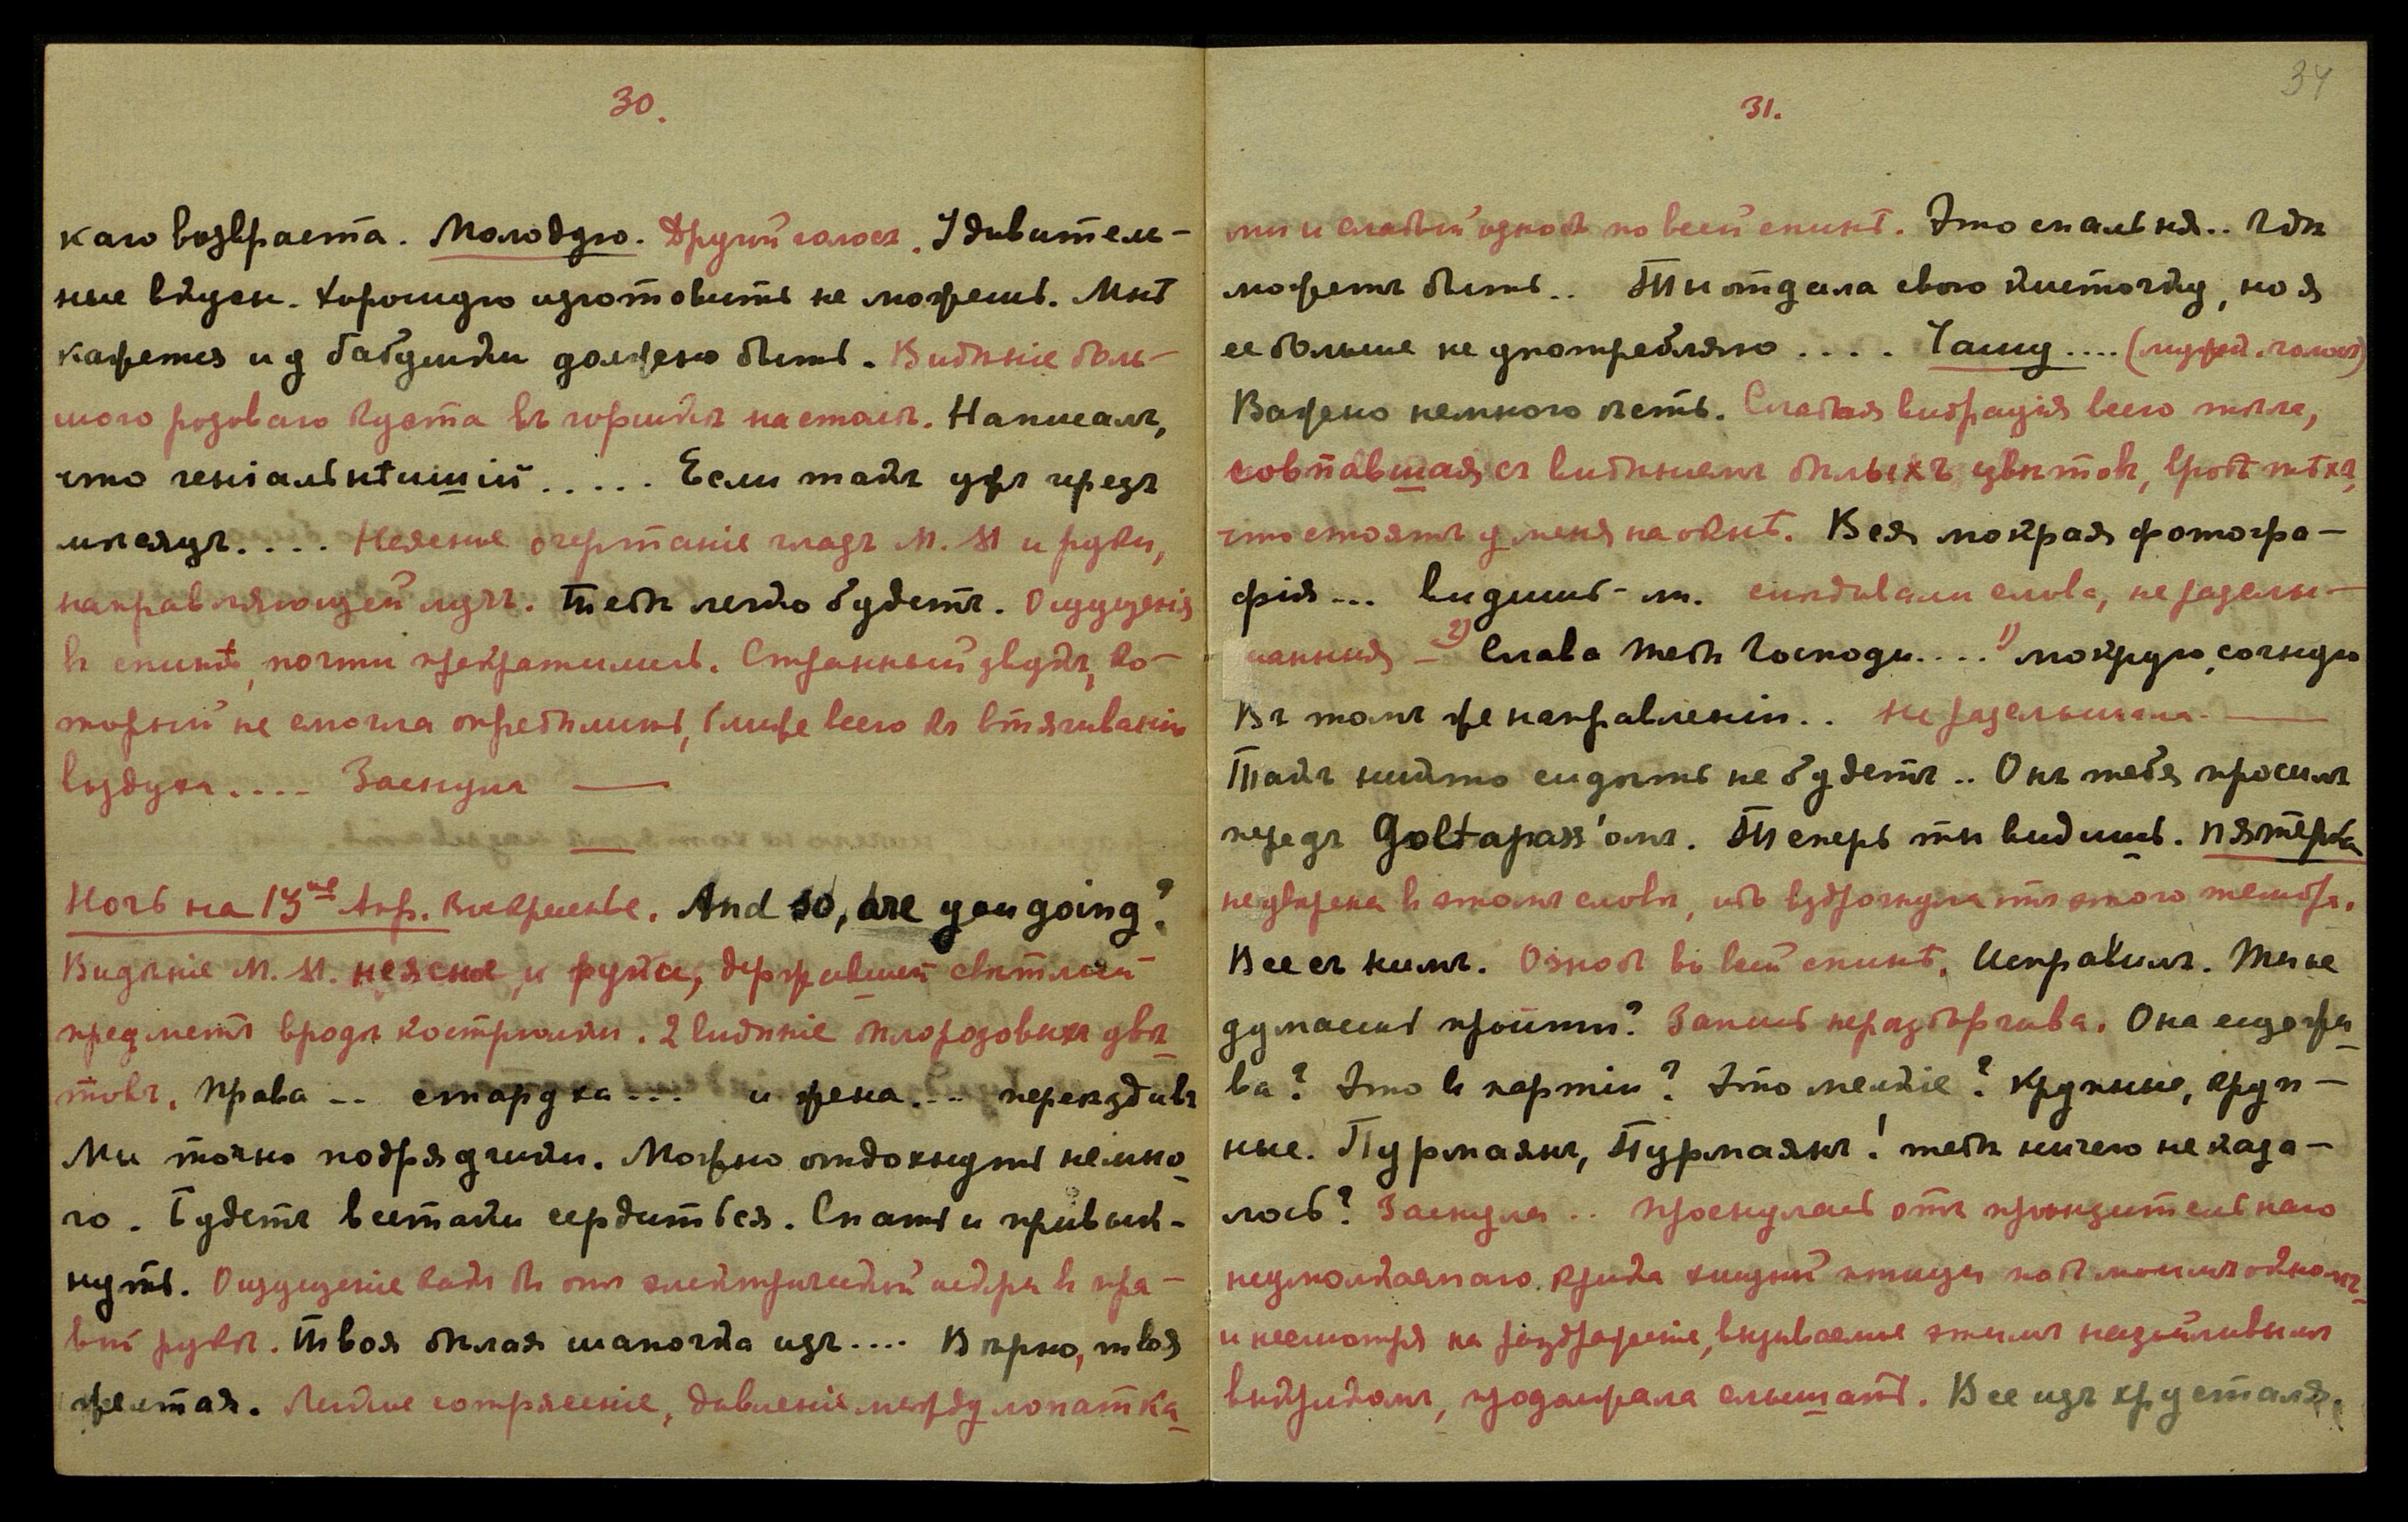 30.
каго возраста. Молодую. Другой голосъ. Удивитель-
ные вкусы. Хорошую изготовить не можешь. Мнѣ
кажется и у бабушки должно быть. Видѣніе боль-
шого розоваго куста въ горшкѣ на столѣ. Написалъ,
что геніальнѣйшій ..... Если такъ ужъ чрезъ
мѣсяцъ.... Неясное очертаніе глазъ М. М и руки,
направляющей лучъ. Тебѣ легко будетъ. Ощущенія
въ спинѣ, почти прекратились. Странный звукъ, ко-
торый не смогла опредѣлить, ближе всего къ втягиванію
воздуха.... Заснула —
Ночь на 13ое Апр. Воскресенье. And so, are you going?
Видѣніе М. М. неясное, и руки, державшей свѣтлый
предметъ вродѣ кострюльки. 2 видѣніе блѣдорозовыхъ цвѣ-
товъ. Права .. старуха... и жена...
Мы точно подрядчики. Можно отдохнуть немно-
го. Будетъ всетаки сердиться. Спать и привык-
нуть. Ощущеніе какъ бы отъ электрической искры въ пра-
вой рукѣ. Твоя бѣлая шапочка изъ.... Вѣрно, твоя
желтая. Легкое сотрясеніе, давленіе между лопатка-
34
31.
ми и слабый ознобъ по всей спинѣ. Это спальня.. Гдѣ
можетъ быть.. Ты отдала свою кисточку, но я
ее больше не употребляю .... Чашу.... (мужск. голосъ)
Важно немного ѣсть. Слабая вибрація всего тѣла,
совпавшая съ видѣніемъ бѣлыхъ цвѣтовъ, вродѣ тѣхъ,
что стоятъ у меня на окнѣ. Вся мокрая фотогра-
фія... видишь-ли. слѣдовали слова, не разслы-
шанныя – 2) Слава Тебѣ Господи.... 1) мокрую, сочную
Въ томъ же направленіи.. не разслышала. —
Такъ никто сидѣть не будетъ.. Онъ тебя просилъ
передъ Goltapass'омъ. Теперь ты видишь. пятерка
не увѣрена въ этомъ словѣ, ибо вздрогнула отъ этого тембра.
Все съ нимъ. Ознобъ во всей спинѣ. Исправилъ. Ты не
думаешь пройти? Запись неразборчива. Она еще жи-
ва? Это въ партіи? Это мелкіе? Крупные, круп-
ные. Пурмаянъ, Пурмаянъ! тебѣ ничего не каза-
лось? Заснула .. Проснулась отъ пронзительнаго
неумолкаемаго крика хищной птицы подъ моимъ окномъ
и несмотря на раздраженіе, вызываемое этимъ назойливымъ
выкрикомъ, продолжала слышать. Все изъ хрусталя.